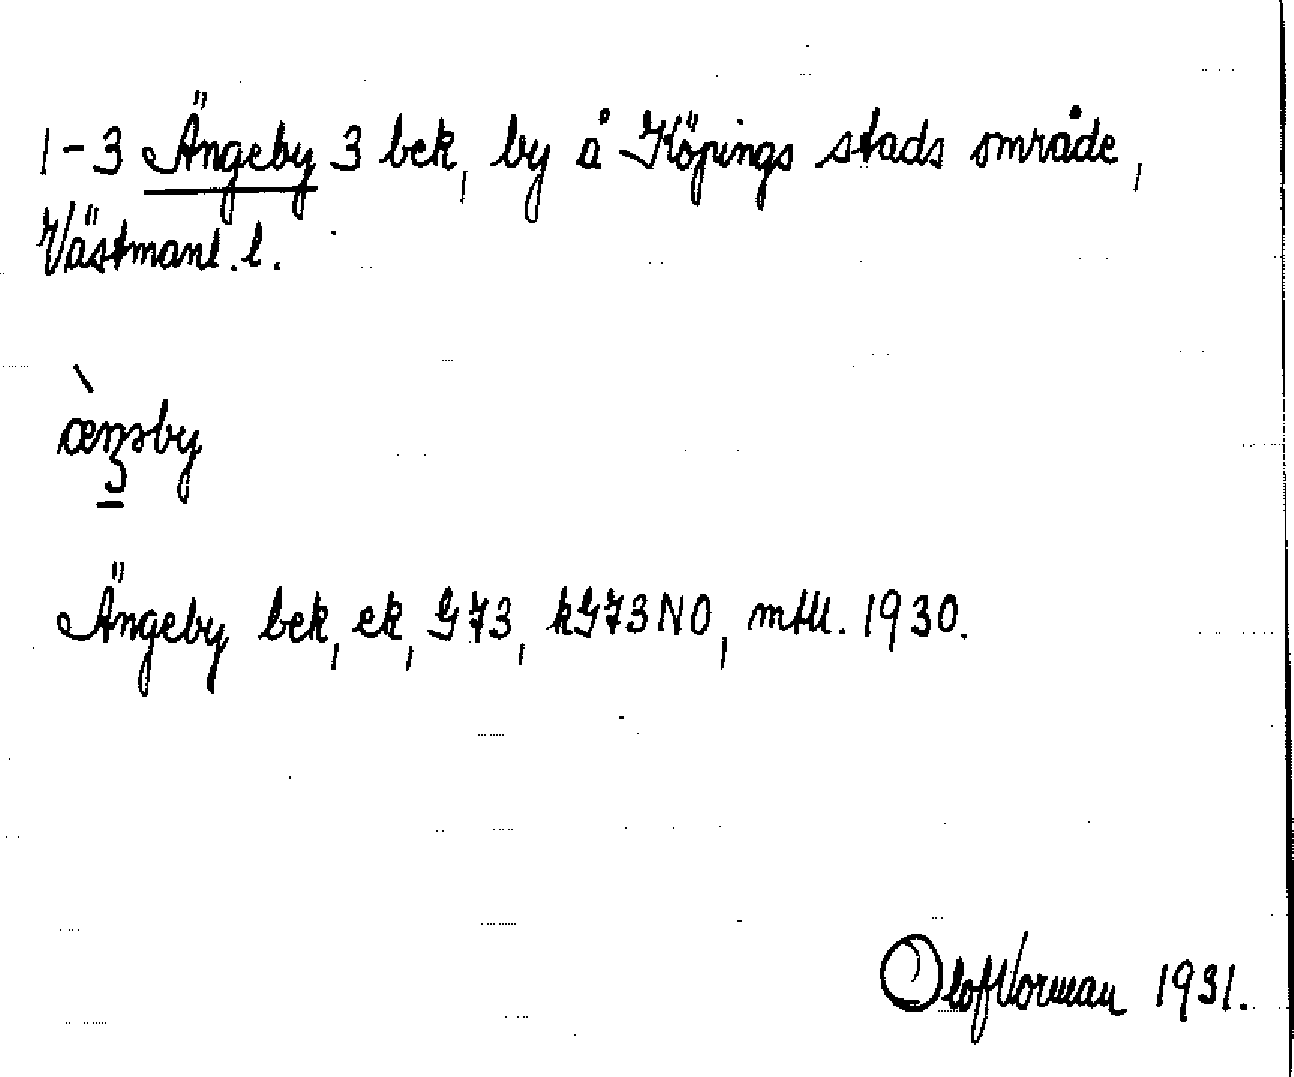 1-3 Ängeby 3 bek, by å Köpings stads område,
Västmanl. l.
Ängeby bek, ek, G73, kG73NO, mtll. 1930.
Olof Vorman 1931.